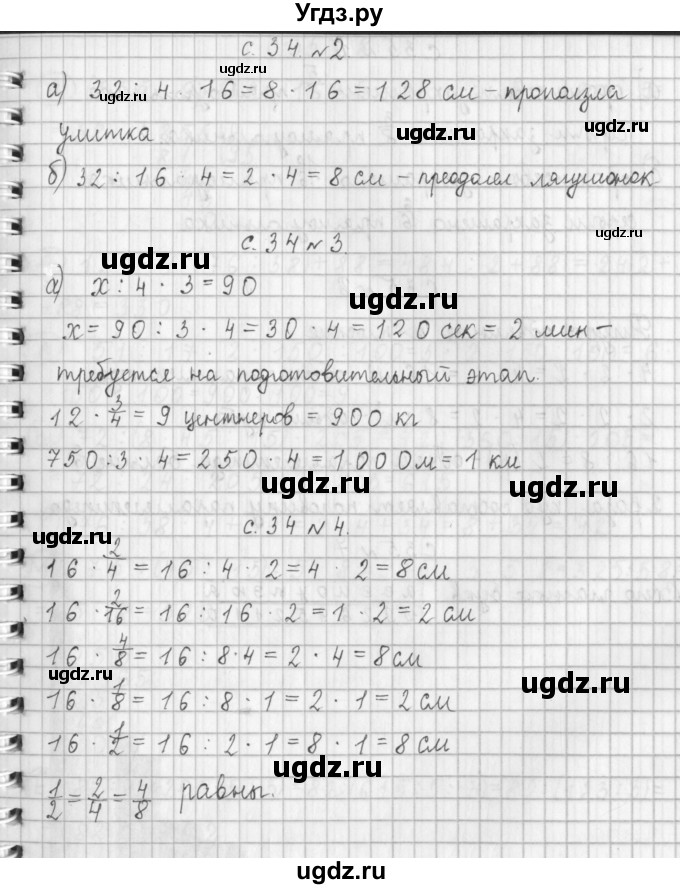 Угдз.ру
с. 34. №2
ugdz.ru
ugdz.ru
а) 32 : 4 · 16 = 8 · 16 = 128 см – проползла
улитка
ugdz.ru
ugdz.ru
б) 32 : 16 · 4 = 2 · 4 = 8 см – преодолел лягушонок
с. 34 №3.
ugdz.ru
ugdz.ru
ugdz.ru
а) x : 4 · 3 = 90
x = 90 : 3 · 4 = 30 · 4 = 120 сек = 2 мин –
требуется на подготовительный этап.
12 · 3/4 = 9 центнеров = 900 кг
750 : 3 · 4 = 250 · 4 = 1000м = 1 км
ugdz.ru
ugdz.ru
с. 34 №4.
ugdz.ru
16 · 2/4 = 16 : 4 · 2 = 4 · 2 = 8 см
16 · 2/16 = 16 : 16 · 2 = 1 · 2 = 2 см
16 · 4/8 = 16 : 8 · 4 = 2 · 4 = 8 см
ugdz.ru
ugdz.ru
16 · 1/8 = 16 : 8 · 1 = 2 · 1 = 2 см
16 · 1/2 = 16 : 2 · 1 = 8 · 1 = 8 см
ugdz.ru
1/2 = 2/4 = 4/8 равны.
ugdz.ru